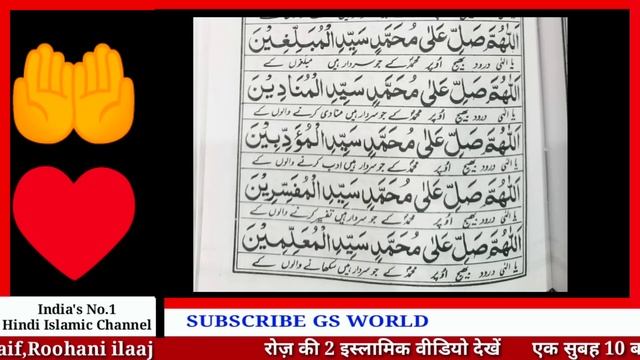 اَللّٰهُمَّ صَلِّ عَلٰى مُحَمَّدٍ سَيِّدِ الْمُبَلِّغِيْنَ
یا الٰہی درود بھیج اوپر محمدؐ کے جو سردار ہیں مبلغوں کے
اَللّٰهُمَّ صَلِّ عَلٰى مُحَمَّدٍ سَيِّدِ الْمُنَادِيْنَ
یا الٰہی درود بھیج اوپر محمدؐ کے جو سردار ہیں منادی کرنے والوں کے
اَللّٰهُمَّ صَلِّ عَلٰى مُحَمَّدٍ سَيِّدِ الْمُؤَدِّبِيْنَ
یا الٰہی درود بھیج اوپر محمدؐ کے جو سردار ہیں ادب کرنے والوں کے
اَللّٰهُمَّ صَلِّ عَلٰى مُحَمَّدٍ سَيِّدِ الْمُفَسِّرِيْنَ
یا الٰہی درود بھیج اوپر محمدؐ کے جو سردار ہیں تفسیر کرنے والوں کے
اَللّٰهُمَّ صَلِّ عَلٰى مُحَمَّدٍ سَيِّدِ الْمُعَلِّمِيْنَ
یا الٰہی درود بھیج اوپر محمدؐ کے جو سردار ہیں سکھانے والوں کے
India's No.1
Hindi Islamic Channel
SUBSCRIBE GS WORLD
aif,Roohani ilaaj रोज़ की 2 इस्लामिक वीडियो देखें एक सुबह 10 ब